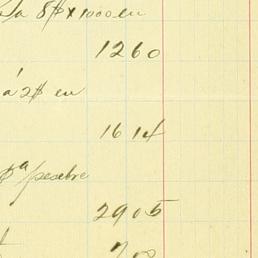 8$ x 1000 en
1260
á 2$ en
1614
pesebre
2905